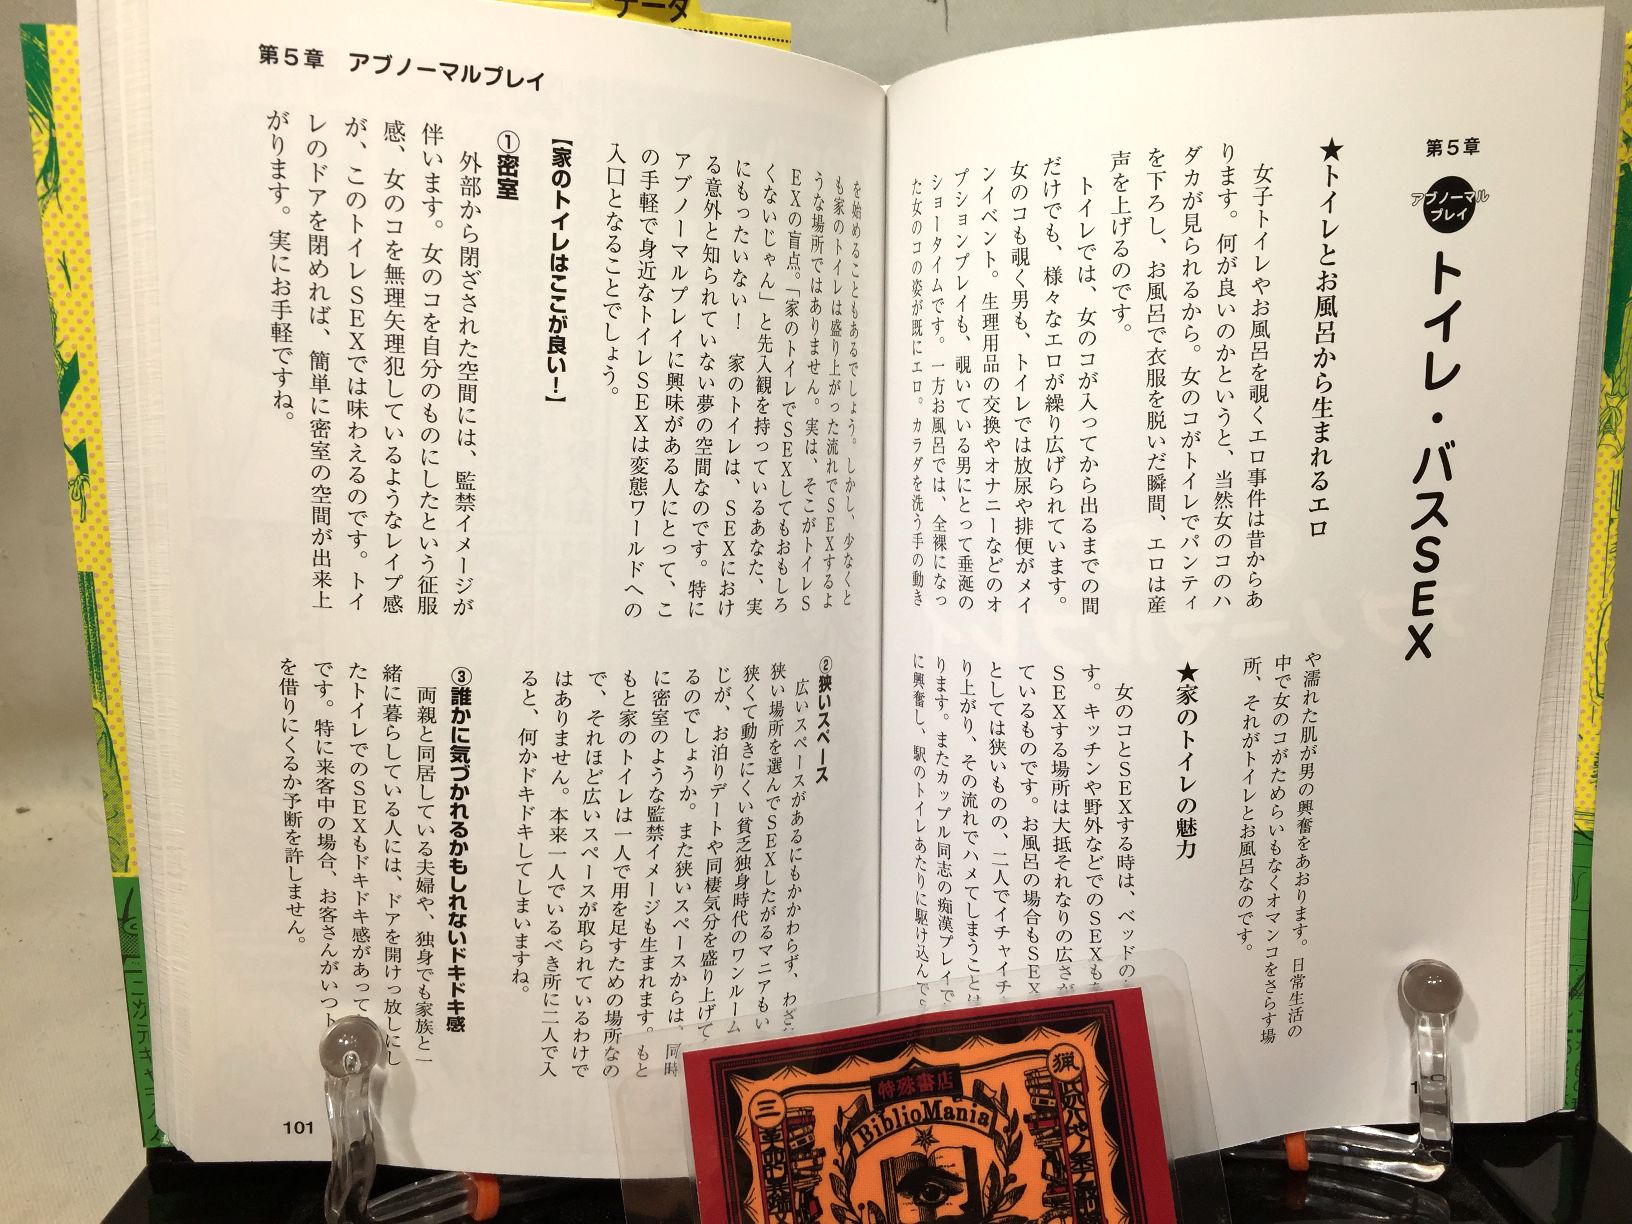 データ
第5章
アブノーマル
プレイ
トイレ・バスSEX
★トイレとお風呂から生まれるエロ
女子トイレやお風呂を覗くエロ事件は昔からあ
ります。何が良いのかというと、当然女のコのハ
ダカが見られるから。女のコがトイレでパンティ
を下ろし、お風呂で衣服を脱いだ瞬間、エロは産
声を上げるのです。
トイレでは、女のコが入ってから出るまでの間
だけでも、様々なエロが繰り広げられています。
女のコも覗く男も、トイレでは放尿や排便がメイ
ンイベント。生理用品の交換やオナニーなどのオ
プションプレイも、覗いている男にとって垂涎の
ショータイムです。一方お風呂では、全裸になっ
た女のコの姿が既にエロ。カラダを洗う手の動き
や濡れた肌が男の興奮をあおります。日常生活の
中で女のコがためらいもなくオマンコをさらす場
所、それがトイレとお風呂なのです。
★家のトイレの魅力
女のコとSEXする時は、ベッドの
す。キッチンや野外などでのSEXも
SEXする場所は大抵それなりの広さが
ているものです。お風呂の場合もSEX
としては狭いものの、二人でイチャイチ
り上がり、その流れでハメてしまうことは
ります。またカップル同志の痴漢プレイで
に興奮し、駅のトイレあたりに駆け込んで
第5章　アブノーマルプレイ
を始めることもあるでしょう。しかし、少なくと
も家のトイレは盛り上がった流れでSEXするよ
うな場所ではありません。実は、そこがトイレS
EXの盲点。「家のトイレでSEXしてもおもしろ
くないじゃん」と先入観を持っているあなた、実
にもったいない！　家のトイレは、SEXにおけ
る意外と知られていない夢の空間なのです。特に
アブノーマルプレイに興味がある人にとって、こ
の手軽で身近なトイレSEXは変態ワールドへの
入口となることでしょう。
【家のトイレはここが良い！】
①密室
外部から閉ざされた空間には、監禁イメージが
伴います。女のコを自分のものにしたという征服
感、女のコを無理矢理犯しているようなレイプ感
が、このトイレSEXでは味わえるのです。トイ
レのドアを閉めれば、簡単に密室の空間が出来上
がります。実にお手軽ですね。
②狭いスペース
広いスペースがあるにもかかわらず、わざ
狭い場所を選んでSEXしたがるマニアもい
狭くて動きにくい貧乏独身時代のワンルーム
じが、お泊りデートや同棲気分を盛り上げて
るのでしょうか。また狭いスペースからは、同時
に密室のような監禁イメージも生まれます。もと
もと家のトイレは一人で用を足すための場所なの
で、それほど広いスペースが取られているわけで
はありません。本来一人でいるべき所に二人で入
ると、何かドキドキしてしまいますね。
③誰かに気づかれるかもしれないドキドキ感
両親と同居している夫婦や、独身でも家族と一
緒に暮らしている人には、ドアを開けっ放しにし
たトイレでのSEXもドキドキ感があって
です。特に来客中の場合、お客さんがいつト
を借りにくるか予断を許しません。
101
特殊書店
BiblioMania
三
猟